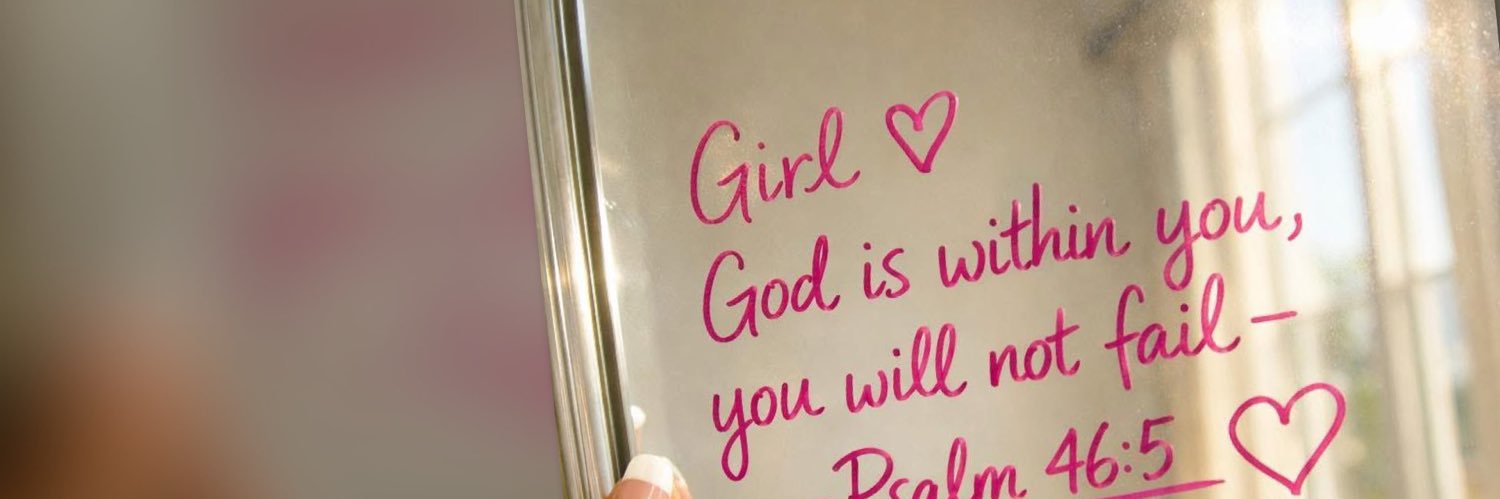 Girl ♡
God is within you,
you will not fail –
Psalm 46:5 ♡